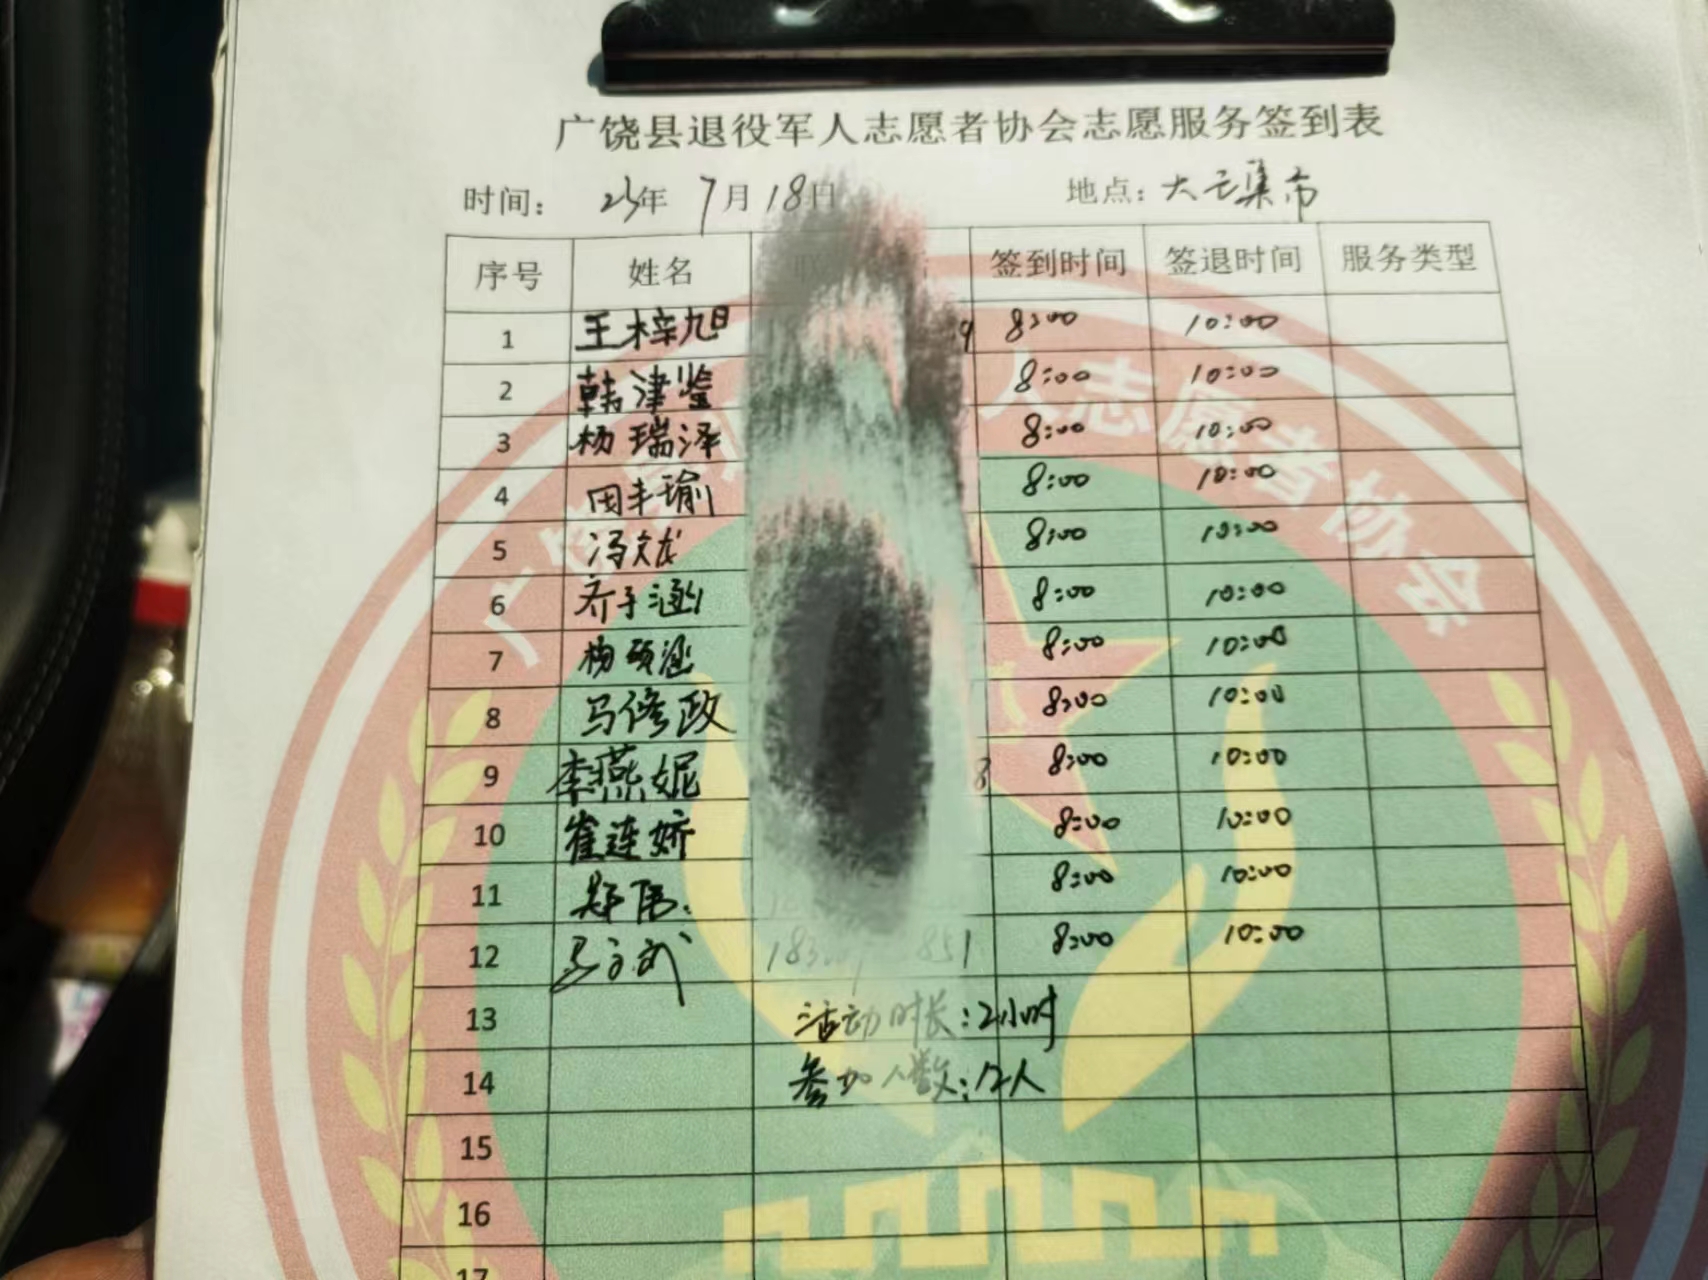 广饶县退役军人志愿者协会志愿服务签到表
时间: 23年 7月18日 地点: 大王集市
序号 姓名 签到时间 签退时间 服务类型
1 王梓旭 9 8:00 10:00
2 韩津鉴 8:00 10:00
3 杨瑞泽 8:00 10:00
4 田丰瑜 8:00 10:00
5 冯文龙 8:00 10:00
6 乔子涵 8:00 10:00
7 杨硕涵 8:00 10:00
8 马修政 8:00 10:00
9 李燕妮 8 8:00 10:00
10 崔连娇 8:00 10:00
11 郑伟 8:00 10:00
12 183 851 8:00 10:00
13 活动时长:2小时
14 参加人数:12人
15
16
17
人志愿者协会